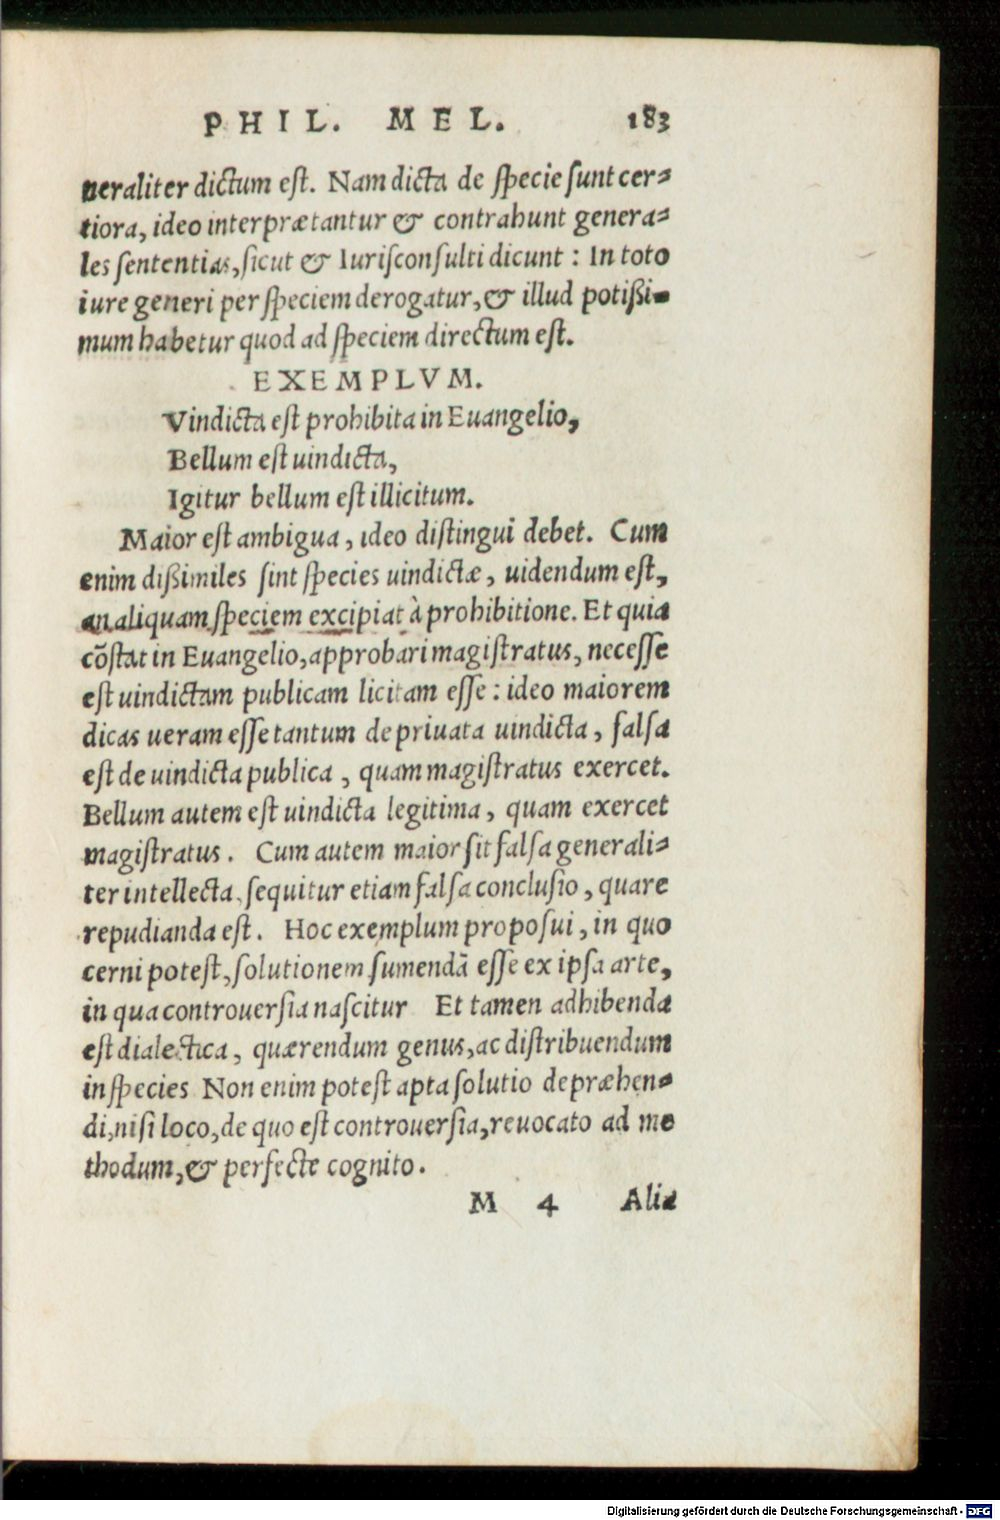 PHIL. MEL. 183
neraliter dictum eſt. Nam dicta de ſpecie ſunt cer⸗
tiora, ideo interprætantur & contrahunt genera⸗
les ſententias, ſicut & Iuriſconſulti dicunt : In toto
iure generi per ſpeciem derogatur, & illud potißi⸗
mum habetur quod ad ſpeciem directum eſt.
EXEMPLVM.
Vindicta eſt prohibita in Euangelio,
Bellum eſt uindicta,
Igitur bellum eſt illicitum.
Maior eſt ambigua, ideo diſtingui debet. Cum
enim dißimiles ſint ſpecies uindictæ, uidendum eſt,
an aliquam ſpeciem excipiat à prohibitione. Et quia
cõſtat in Euangelio, approbari magiſtratus, neceſſe
eſt uindictam publicam licitam eſſe : ideo maiorem
dicas ueram eſſe tantum de priuata uindicta, falſa
eſt de uindicta publica, quam magiſtratus exercet.
Bellum autem eſt uindicta legitima, quam exercet
magiſtratus. Cum autem maior ſit falſa generali⸗
ter intellecta, ſequitur etiam falſa concluſio, quare
repudianda eſt. Hoc exemplum propoſui, in quo
cerni poteſt, ſolutionem ſumendã eſſe ex ipſa arte,
in qua controuerſia naſcitur Et tamen adhibenda
eſt dialectica, quærendum genus, ac diſtribuendum
in ſpecies Non enim poteſt apta ſolutio depræhen⸗
di, niſi loco, de quo eſt controuerſia, reuocato ad me
thodum, & perfecte cognito.
M 4 Alia
Digitalisierung gefördert durch die Deutsche Forschungsgemeinschaft - DFG